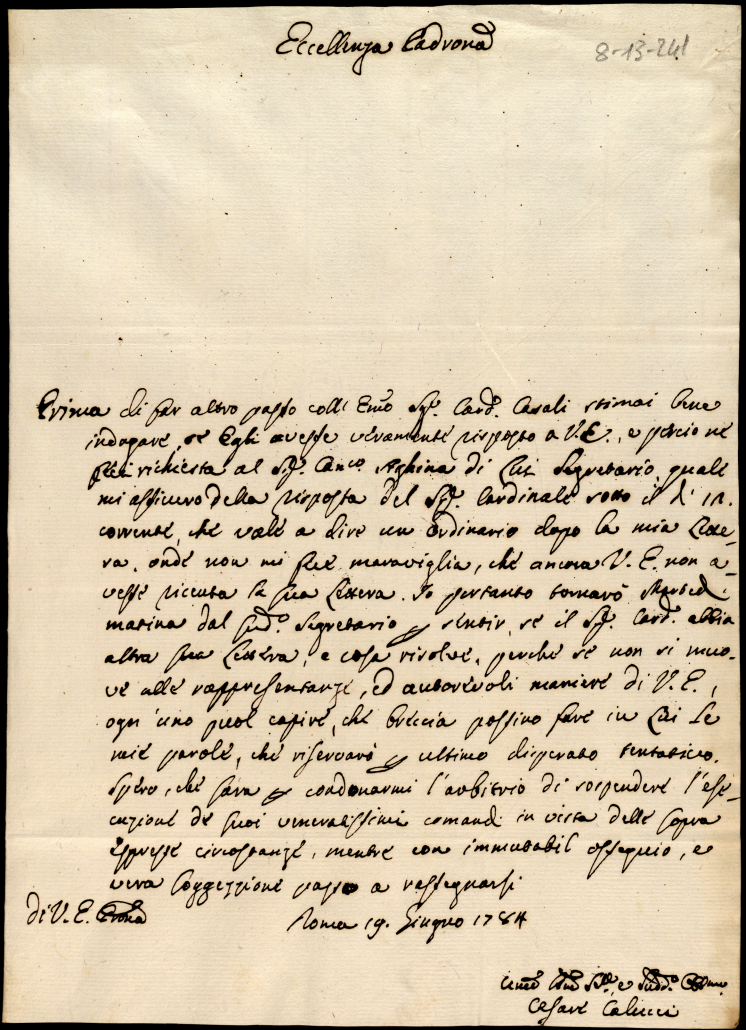 Eccellenza Padrona
8-13-241
Prima di far altro passo coll' Emo Sigr. Card. Casali stimai bene
indagare, se Egli avesse veramente risposto a V.E., e perciò ne
feci richiesta al Sigr. Canco. Aghina di Lui Segretario, quale
mi assicurò della risposta del Sigr. Cardinale sotto il dì 12.
corrente, che vale a dire un ordinario dopo la mia Lette-
ra, onde non mi fece maraviglia, che ancora V. E. non a-
vesse ricevuta la sua Lettera. Io pertanto tornarò Martedì
matina dal sudo. Segretario p sentir, se il Sigr. Card. abbia
altra sua Lettera, e cosa risolve, perche se non si muo-
ve alle rappresentanze, ed autorevoli maniere di V. E.,
ogn'uno puol capire, che breccia possino fare in Lui le
mie parole, che riservarò p ultimo disperato tentativo.
Spero, che sarà p condonarmi l'arbitrio di sospendere l'ese-
cuzione de suoi veneratissimi comandi in vista delle sopra
espresse circostanze, mentre con immutabil ossequio, e
vera soggezzione passo a rassegnarsi
di V. E. Prona
Roma 19. Giugno 1784
Servre e Suddo.
Cesare Calucci